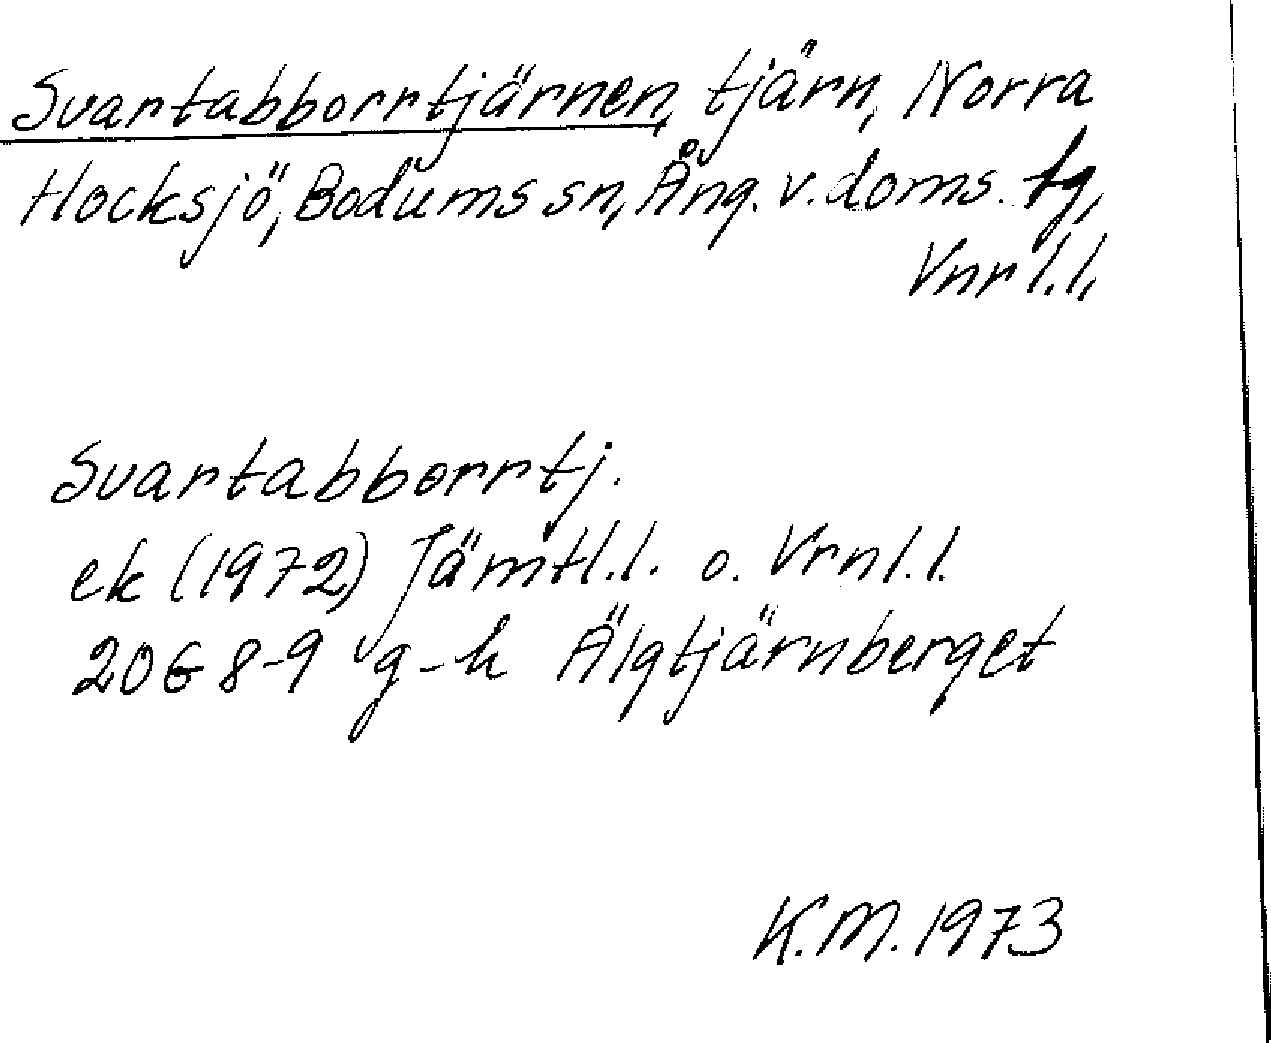 Svartabborrtjärnen, tjärn, Norra
Hocksjö, Bodums sn, Ång. v. doms. tg,
Vnr l.l,
Svartabborrtj.
ek (1972) Jämtl.l. o. Vrnl.l.
20G 8-9 g-h Älgtjärnberget
K.M. 1973